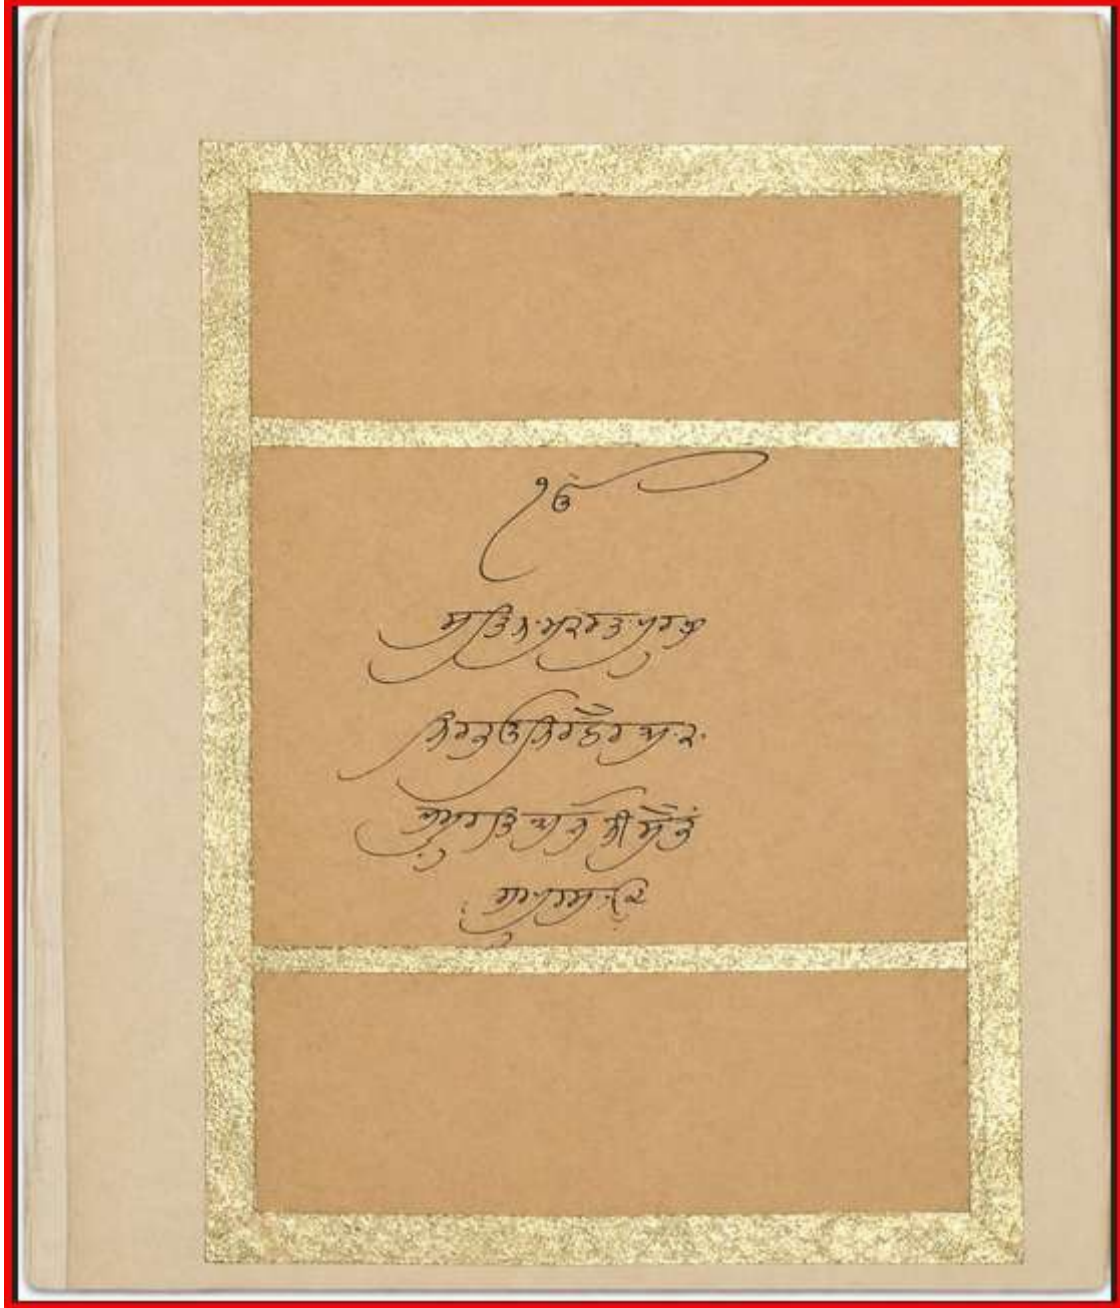 ੴ
ਸਤਿਨਾਮੁਕਰਤਾਪੁਰਖੁ
ਨਿਰਭਉਨਿਰਵੈਰੁਅਕਾ
ਲਮੂਰਤਿਅਜੂਨੀਸੈਭੰ
ਗੁਰਪ੍ਰਸਾਦਿ